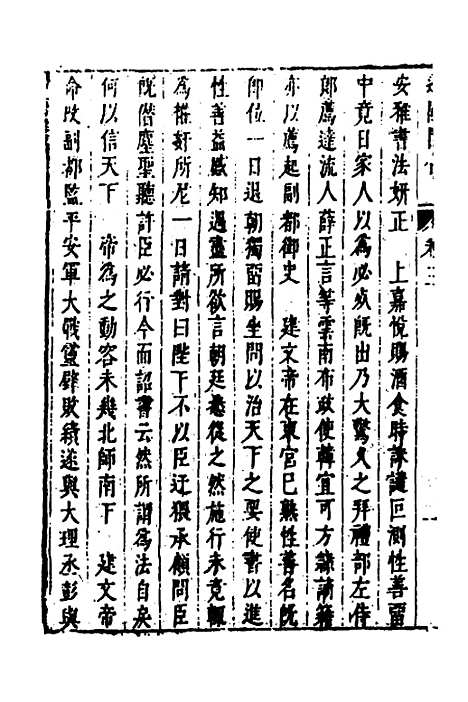 卷二
安雅書法妍正　上嘉悅賜酒食時誅譴叵測性善畱
中竟日家人以為必死既出乃大驚久之拜禮部左侍
郎薦達流人薛正言等雲南布政使韓宜可方隸謫籍
亦以薦起副都御史　建文帝在東宮已熟性善名既
卽位一日退朝獨畱賜坐問以治天下之要使書以進
性善益感知遇盡所欲言朝廷悉從之然施行未竟輒
為搭奸所尼一日請對曰陛下不以臣迂猥承顧問臣
既僭塵聖聽許臣必行今而詔書云然所謂為法自戾
何以信天下　帝為之動容未幾北師南下　建文帝
命改副都監平安軍大戰靈壁敗績遂與大理丞彭與